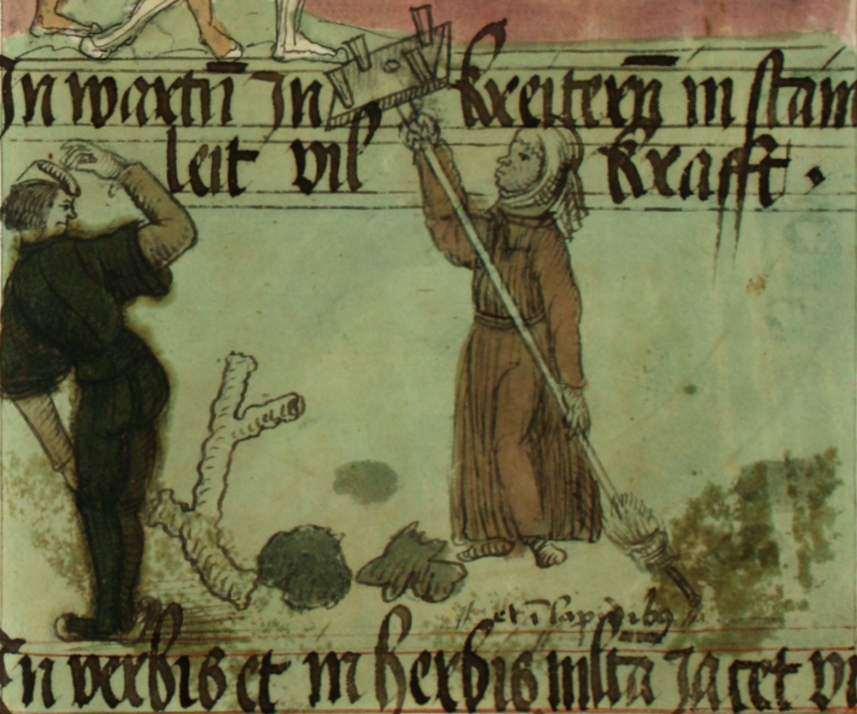 In wartñ In kreitern̄ in stain
leit vil krafft .
et ī lapidibꝫ
In verbis et in herbis mltā Jacet vi